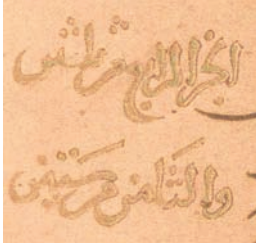 الجز الرابع من ثلثين
والثامن من ستين